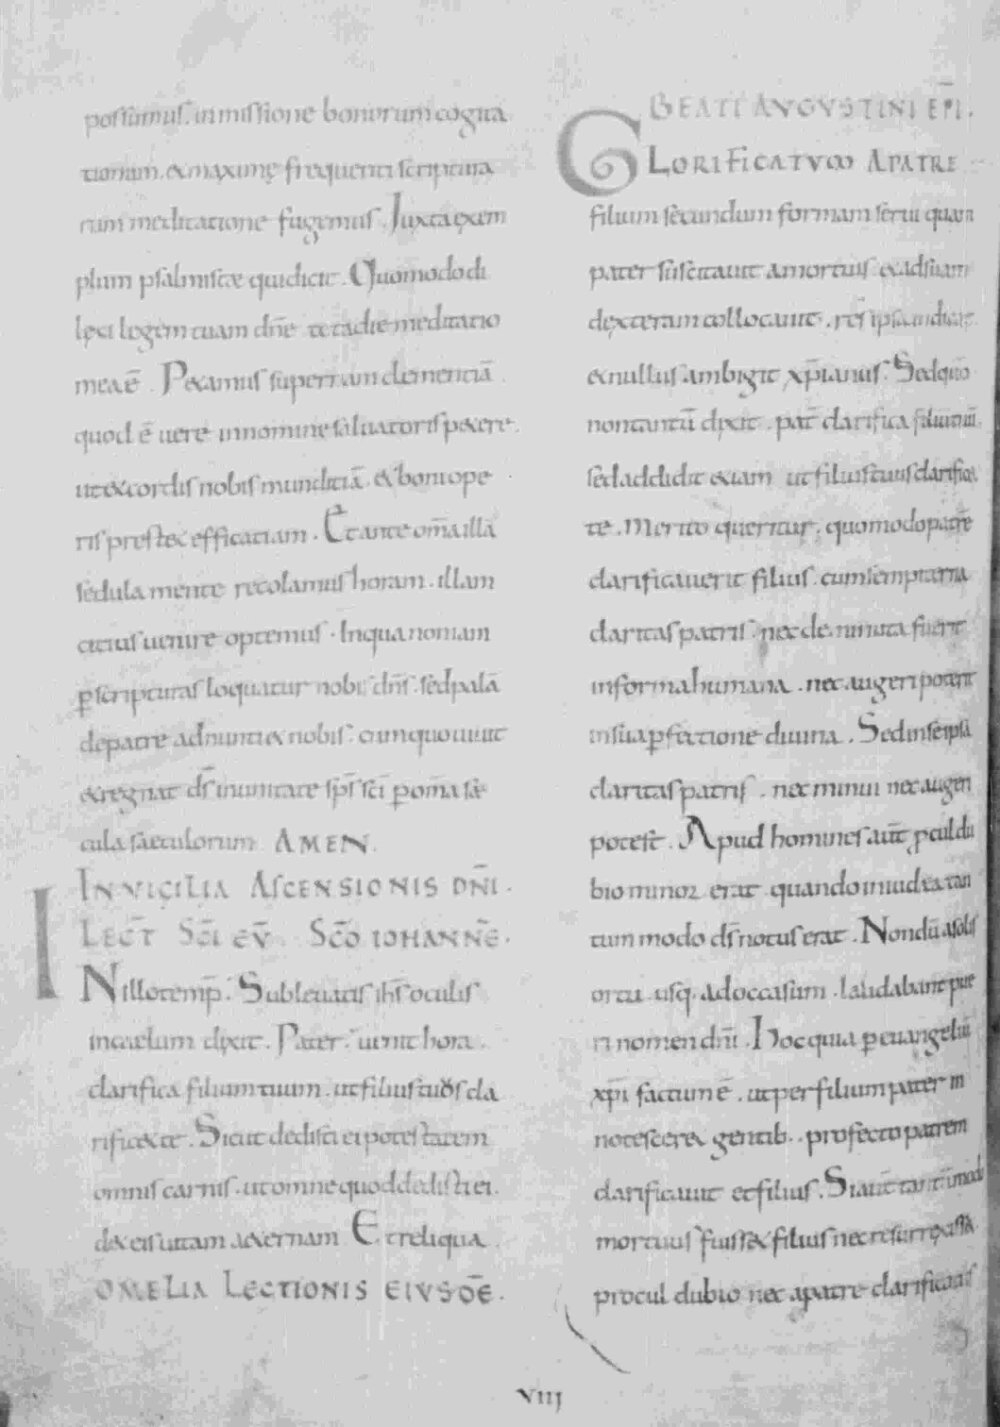 possumus. in missione bonorum cogita
tionum. & maxime frequenti scriptura
rum meditatione fugemus. Iuxta exem
plum psalmistæ qui dicit. Quomodo di
lexi legem tuam dn̄e tota die meditatio
mea ē. Petamus supernam clementiā.
quod ē uere in nomine saluatoris petere.
ut & cordis nobis munditiā. & boni ope
ris prestet efficatiam. Et ante om̄a illā
sedula mente recolamus horam. illam
citius uenire optemus. In qua non iam
ꝑ scripturas loquatur nobis dn̄s. sed palā
de patre adnunti& nobis. cum quo uiuit
& regnat d̄s in unitate sp̄s sc̄i ꝑ om̄a sæ
cula sæculorum AMEN.
IN VIGILIA ASCENSIONIS DN̄I.
LECT̄ SC̄I EV̄. SC̄D IOHANN̄E.
IN illo temp̄. Subleuatis ih̄s oculis
in cælum dixit. Pater. uenit hora.
clarifica filium tuum. ut filius tuus cla
rific& te. Sicut dedisti ei potestatem
omnis carnis. ut omne quod dedisti ei.
d& eis uitam æternam Et reliqua.
OMELIA LECTIONIS EIVSDĒ.
BEATI AVGVSTINI EP̄I.
GLORIFICATVM A PATRE
filium secundum formam serui quam
pater suscitauit a mortuis. & ad suam
dexteram collocauit. res ipsa indicat
& nullus ambigit xp̄ianus. Sed quō
non tantū dixit. pat̄ clarifica filium tuū.
sed addidit etiam ut filius tuus clarific&
te. Merito queritur. quomodo patrē
clarificauerit filius. cum sempiterna
claritas patris. nec deminuta fuerit
in forma humana. nec augeri potuerit
in sua ꝑfectione diuina. Sed in se ipsa
claritas patris. nec minui nec augeri
potest. Apud homines aut̄ ꝓcul du
bio minor erat quando in iudea tan
tum modo d̄s notus erat. Nondū a solis
ortu usq. ad occasum. laudabant pue
ri nomen dn̄i. Hoc quia ꝑ euangeliū
xp̄i factum ē. ut per filium pater in
notescer& gentib. profecto patrem
clarificauit et filius. Si aut̄ tantūmodo
mortuus fuiss& filius nec resurrexiss&
procul dubio nec a patre clarificatus
VIIJ